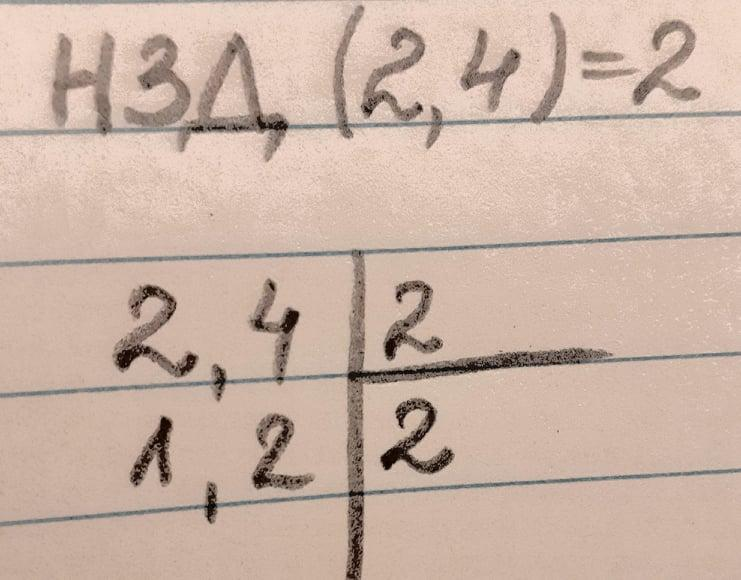 НЗД (2,4)=2
2,4 | 2
1,2 | 2